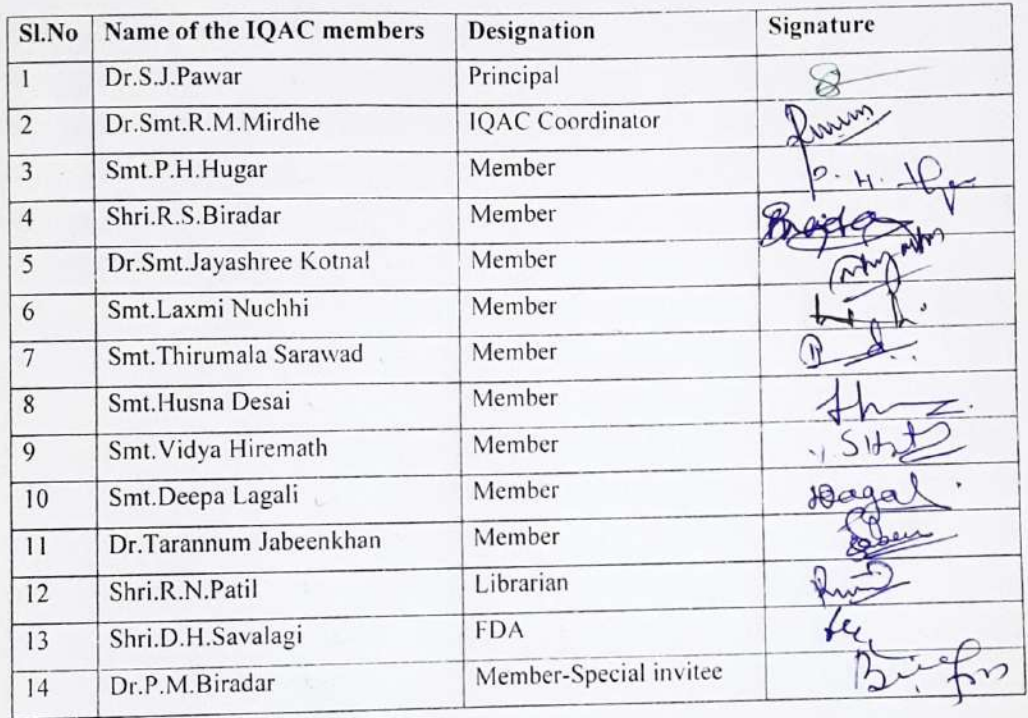 Sl.No Name of the IQAC members Designation Signature
1 Dr.S.J.Pawar Principal
2 Dr.Smt.R.M.Mirdhe IQAC Coordinator
3 Smt.P.H.Hugar Member P. H.
4 Shri.R.S.Biradar Member
5 Dr.Smt.Jayashree Kotnal Member
6 Smt.Laxmi Nuchhi Member
7 Smt.Thirumala Sarawad Member
8 Smt.Husna Desai Member
9 Smt.Vidya Hiremath Member
10 Smt.Deepa Lagali Member
11 Dr.Tarannum Jabeenkhan Member
12 Shri.R.N.Patil Librarian
13 Shri.D.H.Savalagi FDA
14 Dr.P.M.Biradar Member-Special invitee